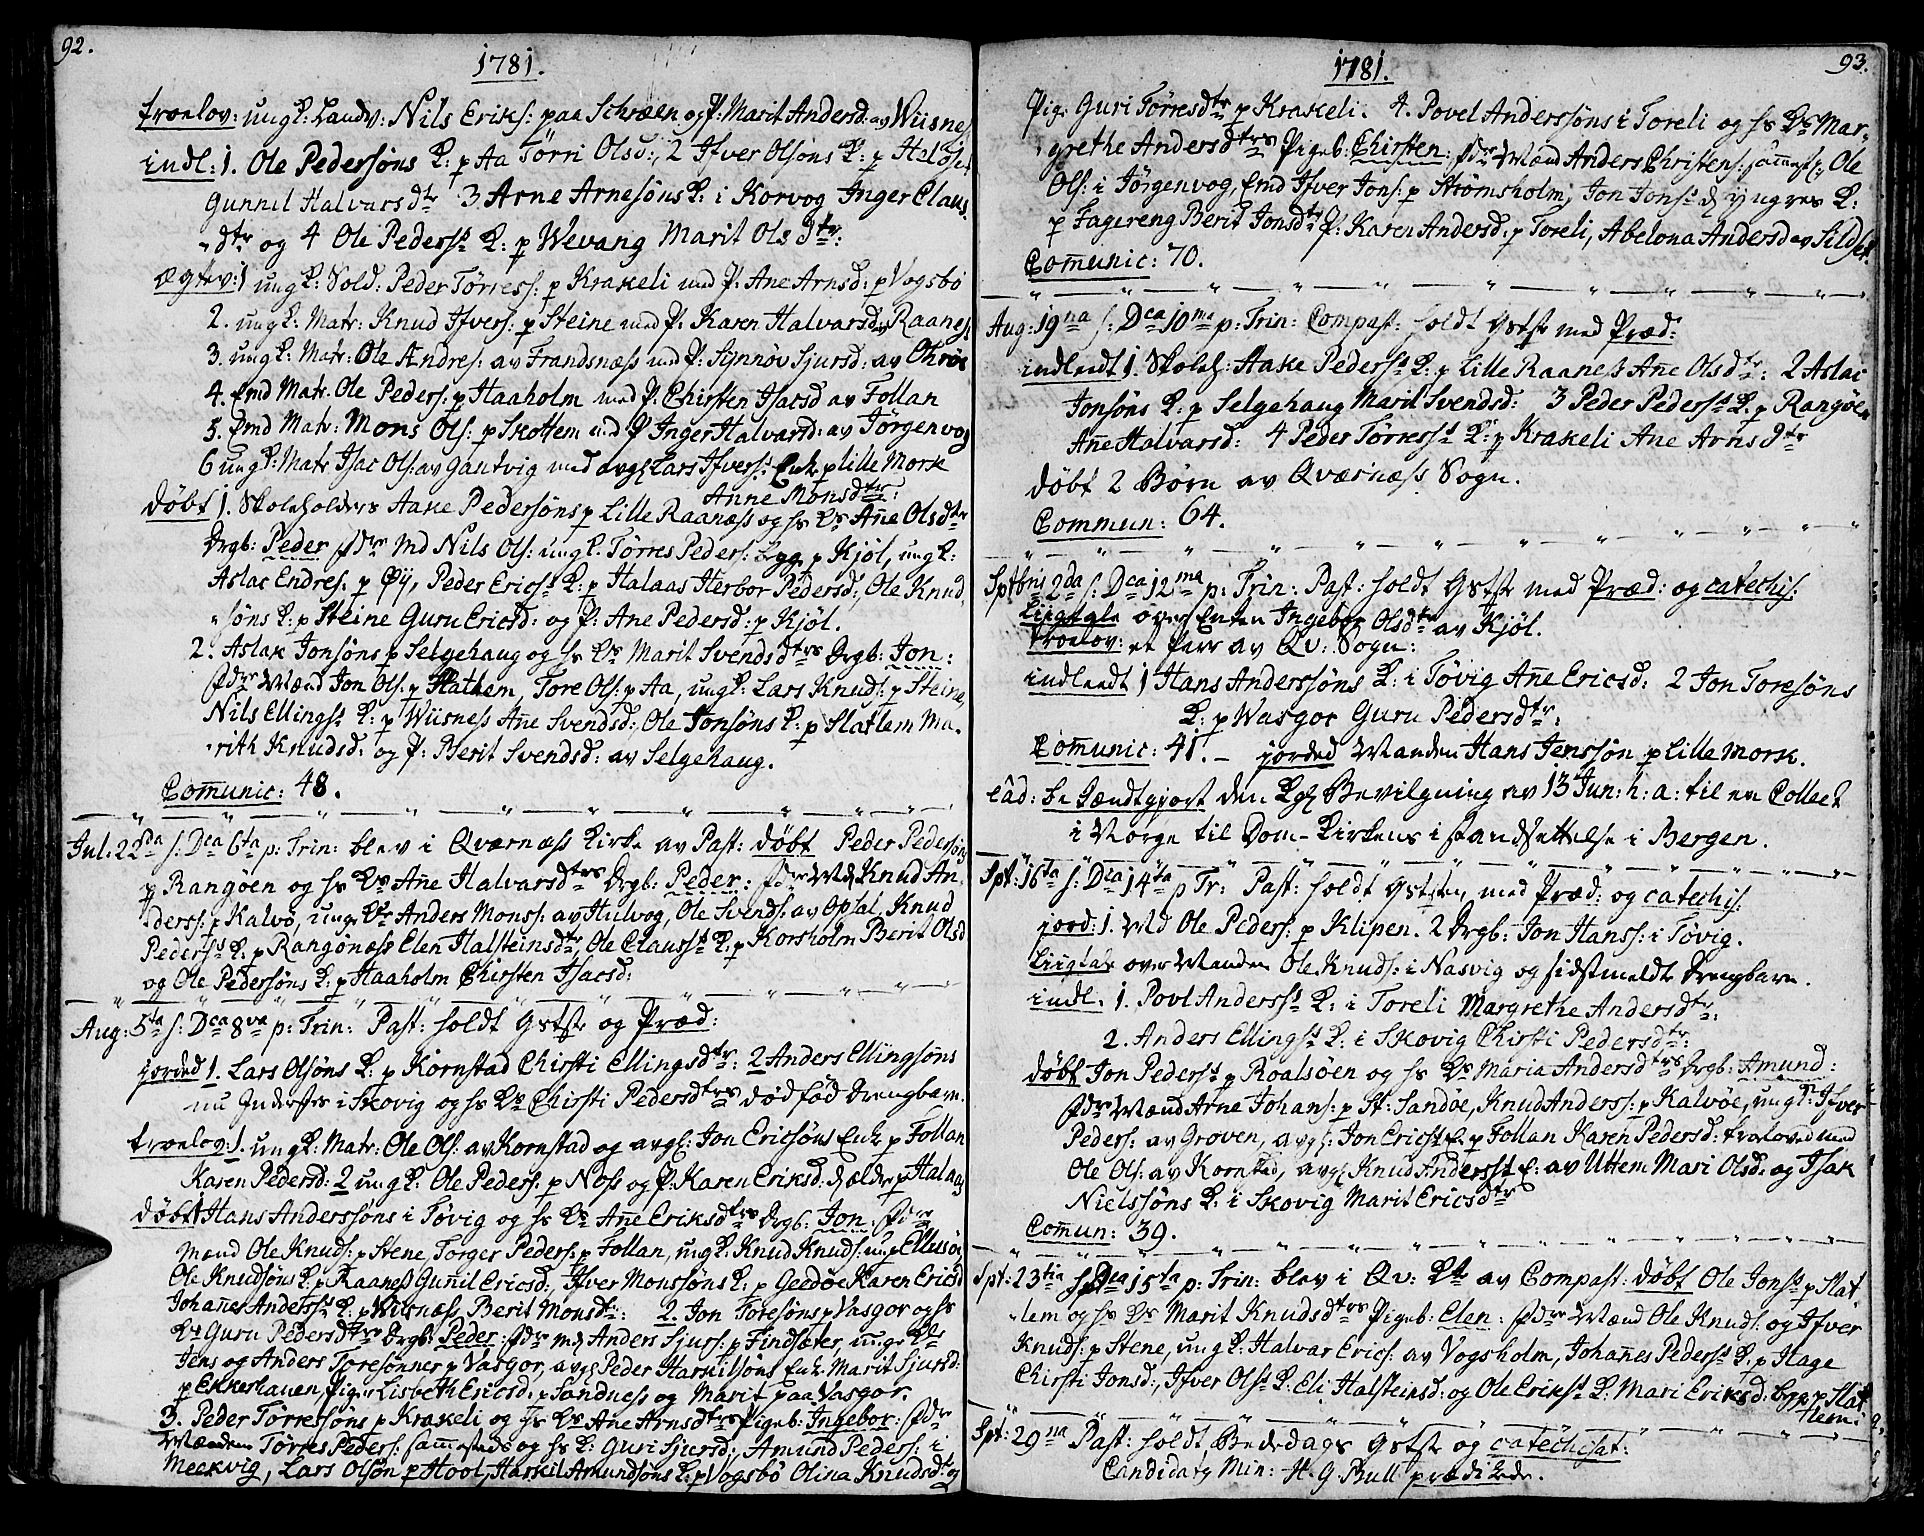 92.
1781.
troelov: ungK: Landv: Nils Eriks: paa Schræen og P: Marit Andersd: av Wiisnes
indl: 1. Ole Pedersøns K: p Aa Törri Olsd:, 2 Ifver Olsøns K: p
Gunnil Halvarsdtr 3 Arne Arnesøns K: i Korvog Inger Claus
dtr og 4 Ole Peders: K: p Wevang Marit Olsdtr:
ægtev: 1 ungK: Sold: Peder Törres: p Krakeli med P: Ane Arnsd: p Vogsbø
2. ungK: Matr: Knud Ifvers: p Steine med P: Karen Halvarsd: Raanes
3. ungK: Matr: Ole Andres: av Frandsnæss med P: Synnøv Sjursd: av
4. Emd Matr. Ole Peders: p Haaholm med P: Chirsten Isacsd av Follan
5. Emd Matr: Mons Ols: p Skottem med P Inger Halvarsd: av Jørgenvog
6 ungK: Matr Isac Ols: av Gantvig med avgl Lars Ifvers: Enk p Lille Mork
Anne Monsdtr:
döbt 1. Skoleholders Aake Pedersøns p Lille Raanæss og hs Ks Añe Olsdtr
Drgb: Peder fdr Md Nils Ols: ungK. Törres Peders: bgg p Kjöl, ungK:
Aslac Endres: p Øÿ, Peder Erics: K: p Halaas Herbor Pedersd:, Ole Knud
søns K: p Steine Guru Ericsd: og P: Ane Pedersd: p Kjöl.
2. Aslak Jonsøns p Selgehaug og hs Ks Marit Svendsdtrs Drgb: Jon:
fdr Mænd Jon Ols: p Hathem, Tore Ols: p Aa, ungK: Lars Knuds: p Steine,
Nils Ellings: K: p Wiisness Añe Svendsd: Ole Jonsøns K: p Slatlem Ma-
rith Knudsd: og P: Berit Svendsd: av Selgehaug.
Com̃unic: 48.
Jul: 22da s: Dca 6ta p: Trin: blev i Qværnæss Kirke av Past: döbt Peder Pedersøns
p Rangøen og hs Ks Añe Halvarsdtrs Drgb: Peder: fdr Md Knud An
ders: p Kalvø, ungKr Anders Mons: av Hulvog, Ole Svends: av Opsal, Knud
Peders: K: p Rangønæss Elen Halsteinsdtr, Ole Claus: K: p Korsholm Berit Olsd
og Ole Pedersøns K: p Haaholm Chirsten Isacsd:
Aug: 5ta s: Dca 8va p: Trin: Past: holdt Gstste og Præd:
jorded 1. Lars Olsøns K: p Kornstad Chirsti Ellingsdtr: 2 Anders Ellingsøns
nu Inderster i Skovig og hs Ks Chirsti Pedersdtrs dödföd Drengbarn.
troelov: 1. ungK: Matr: Ole Ols: av Kornstad og avgl: Jon Ericsøns Enk p Follan
Karen Pedersd: 2 ungK: Ole Peders: p Noss og P: Karen Eriksd: d ældre p Halaas
döbt 1 Hans Anderssøns i Tövig og hs Ks Añe Eriksdtrs Drgb: Jon: fdr
Mænd Ole Knuds: p Stene, Torger Peders: p Follan, ungK: Knud Knuds: p Ellessøe
Ole Knudsøns K: p Raaness Gunil Ericsd:, Ifver Monssøns K: p Geedøe Karen Ericsd
Johañes Anders: K: p Wiisnæss, Berit Monsdtr: 2. Jon Toresøns p Vasgor og hs
Ks Guru Pedersdtrs Drgb: Peder: fdr md Anders Sjurs: p Findsæter, ungeKr
Jens og Anders Toresønner p Vasgor, avgl Peder Harkilsøns Enk Marit Sjursd:
p Ekkerhauen, Piger Lisbeth Ericsd: p Sandness og Marit paa Vasgor.
3. Peder Törressøns p Krakeli og hs Ks Ane Arnsdtrs Pigeb: Ingebor: fdr
Mænden Törres Peders: sam̃esteds og hs K: Guri Sjursd: Amund Peders: i
Meekvig, Lars Olsøn p Hool, Harkil Amundsøns K: p Vogsbø Olina Knudsdtr og
93.
1781.
Pige Guri Törresdtr p Krakeli. 4. Povel Anderssøns i Toreli og hs Ks Mar-
grethe Andersdtrs Pigeb: Chirsten: fdr Mænd Anders Christens: sam̃est:, Ole
Ols: i Jörgenvog, Emd Ifver Jons: p Strömsholm, Jon Jons: d yngres K:
p Fagereng Berit Jonsdtr P: Karen Andersd: p Toreli, Abelona Andersd av Sildset.
Com̃unic: 70.
Aug: 19na s: Dca 10ma p: Trin: Compast: holdt Gstste med Præd:
indleedt 1. Skoleh: Aake Peders: K: p Lille Raaness Añe Olsdtr: 2 Aslac
Jonsøns K: p Selgehaug Marit Svendsd: 3 Peder Peders: K: p Rangøen
Añe Halvarsd: 4 Peder Törres: K: p Krakeli Ane Arnsdtr
döbt 2 Börn av Qværnæss Sogn.
Commun: 64.
Sptbris 2da s: Dca 12ma p: Trin: Past: holdt Gstste med Præd: og catechis:
Liigtale over Enken Ingebor Olsdtr av Kjöl.
troelov: et Parr av Qv: Sogn:
indleedt 1 Hans Anderssøns K: i Tövig Añe Ericsd: 2 Jon Toresøns
K: p Wasgor Guru Pedersdtr:
Com̃unic: 41. – jorded Manden Hans Jenssøn p Lille Mork.
eâd: bekiendtgjort den Kgl Bevilgning av 13 Jun: h: a: til en Collect
i Norge til Dom-Kirkens istandsettelse i Bergen.
Spt: 16ta s: Dca 14ta p Tr: Past: holdt Gststen med Præd: og catechis:
jord: 1. Md Ole Peders: p Klipen. 2 Drgb: Jon Hans: i Tövig.
Liigtale over Manden Ole Knuds: i Nasvig og sidstmeldte Drengbarn.
indl: 1. Povl Anders: K: i Toreli Margrethe Andersdtr:
2. Anders Ellings: K: i Skovig Chirsti Pedersdtr:
döbt Jon Peders: p Roalsöen og hs Ks Maria Andersdtrs Drgb: Amund:
fdr Mænd Arne Johans: p St: Sandøe, Knud Anders: p Kalvøe, ungK: Ifver
Peders: av Groven, avgl: Jon Erics: E: p Follan Karen Pedersd: trolovet med
Ole Ols: av Kornstad, avgl Knud Anders: E: av Uttem Mari Olsd: og Isak
Nielssøns K: i Skovig Marit Ericsdtr
Com̃un: 39.
Spt: 23tia s: Dca 15ta p: Trin: blev i Qv: Kk av Compast: döbt Ole Jons: p Slat
lem og hs Ks Marit Knudsdtrs Pigeb: Elen: fdr Mænd Ole Knuds: og Ifver
Knuds: p Stene, ungK: Halvar Erics: av Vogsholm, Johañes Peders: K: p Hage
Chirsti Jonsd:, Ifver Ols: K: Eli Halsteinsd: og Ole Eriks: K: Mari Eriksd: bgg p Slat
tlem:
Spt: 29na Past: holdt Bededags Gstste og catechisat:
Candidatg Min: H. G Bull prædikede.